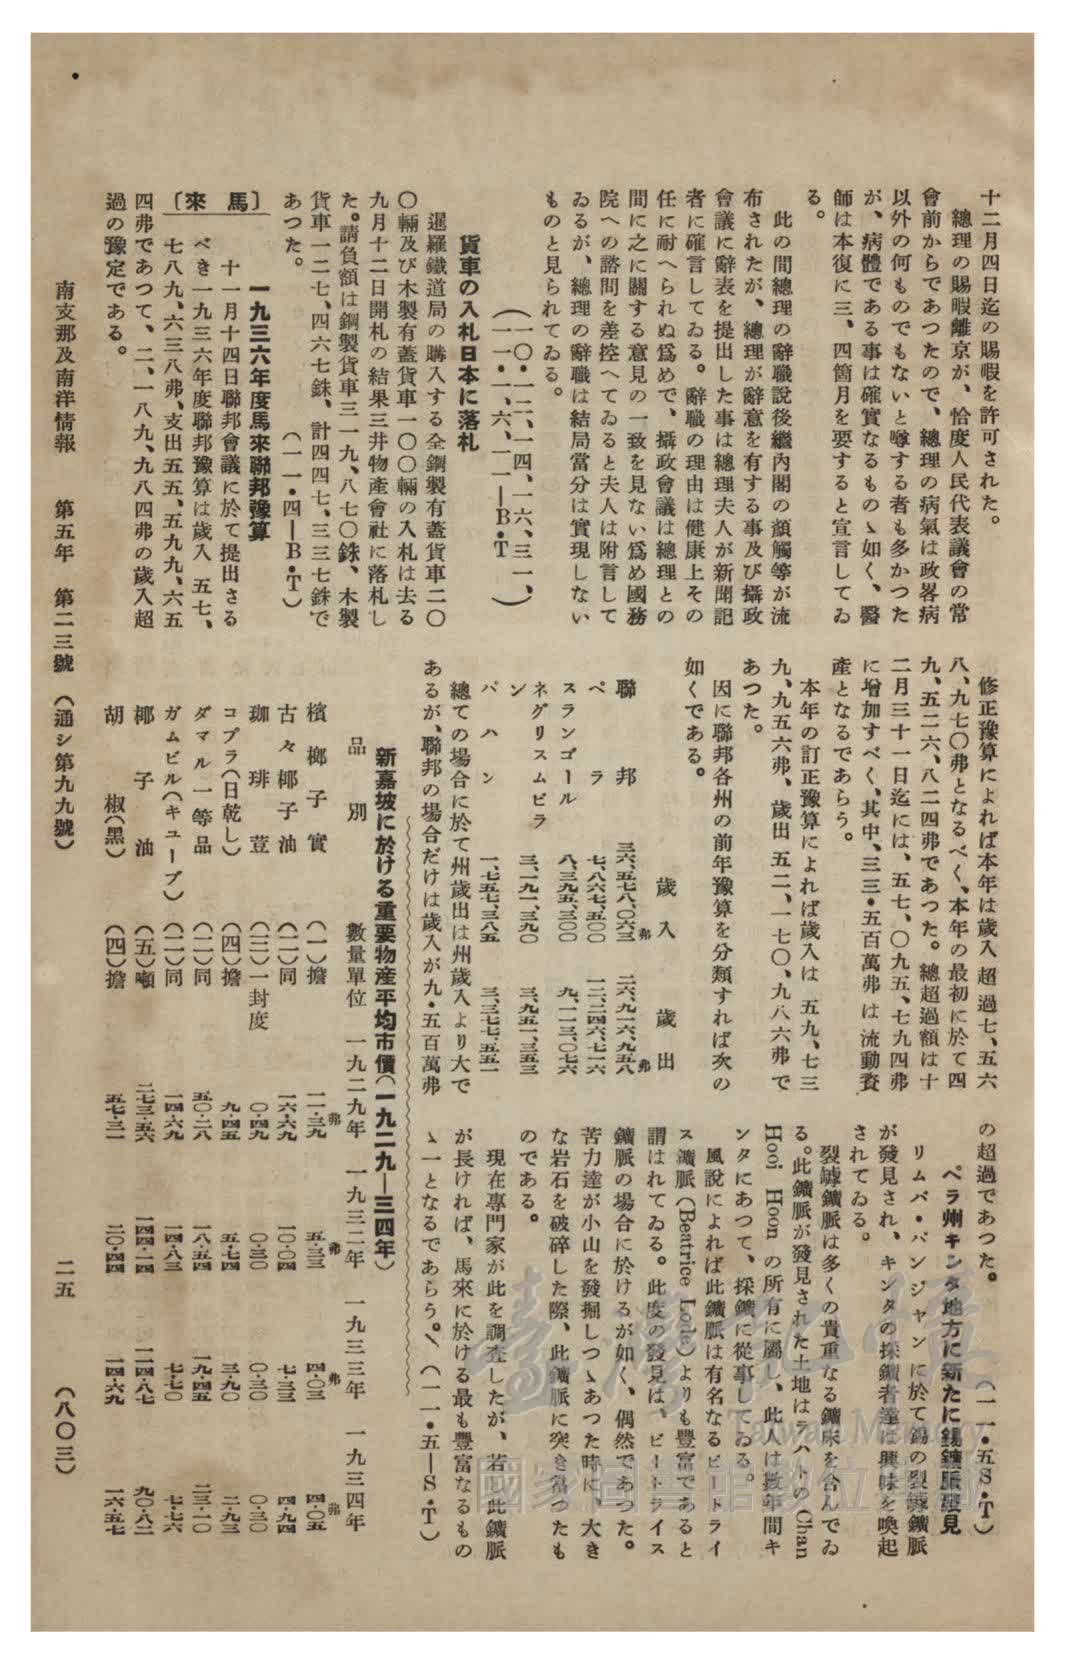 十二月四日迄の賜暇を許可された。
總理の賜暇離京が、恰度人民代表議會の常
會前からであつたので、總理の病氣は政畧病
以外の何ものでもないと噂する者も多かつた
が、病體である事は確實なるものゝ如く、醫
師は本復に三、四箇月を要すると宣言してゐ
る。
此の間總理の辭職說後繼內閣の顏觸等が流
布されたが、總理が辭意を有する事及び攝政
會議に辭表を提出した事は總理夫人が新聞記
者に確言してゐる。辭職の理由は健康上その
任に耐へられぬ爲めで、攝政會議は總理との
間に之に關する意見の一致を見ない爲め國務
院への諮問を差控へてゐると夫人は附言して
ゐるが、總理の辭職は結局當分は實現しない
ものと見られてゐる。
（一〇・一二、一四、一六、三一、
一一・一、六、一一―B・T）
貨車の入札日本に落札
暹羅鐵道局の購入する全鋼製有蓋貨車二〇
〇輛及び木製有蓋貨車一〇〇輛の入札は去る
九月十二日開札の結果三井物產會社に落札し
た。請負額は鋼製貨車三一九、八七〇銖、木製
貨車一二七、四六七銖、計四四七、三三七銖で
あつた。
（一一・四―B・T）
〔馬來〕
一九三六年度馬來聯邦豫算
十一月十四日聯邦會議に於て提出さる
べき一九三六年度聯邦豫算は歲入 五七、
七八九、六三八弗、支出五五、五九九、六五
四弗であつて、二、一八九、九八四弗の歲入超
過の豫定である。
修正豫算によれば本年は歲入超過七、五六
八、九七〇弗となるべく、本年の最初に於て四
九、五二六、八二四弗であつた。總超過額は十
二月三十一日迄には、五七、〇九五、七九四弗
に增加すべく、其中、三三・五百萬弗は流動資
產となるであらう。
本年の訂正豫算によれば歲入は 五九、七三
九、九五六弗、歲出 五二、一七〇、九八六弗で
あつた。
因に聯邦各州の前年豫算を分類すれば次の
如くである。
歲入 歲出
聯邦 三六、五七八、〇六三弗 二六、九一六、九五八弗
ペラ 七、八六七、五〇〇 一二、二四六、七一六
スランゴール 八、三九五、三〇〇 九、一一三、〇七六
ネグリスムビラ
ン 三、一九一、三九〇 三、九五一、三五三
パハン 一、七五七、三八五 三、三七七、五五一
總ての場合に於て州歲出は州歲入より大で
あるが、聯邦の場合だけは歲入が九・五百萬弗
の超過であつた。 （一一・五S・T）
ペラ州キンタ地方に新たに錫鑛脈發見
リムパ・パンジャンに於て錫の裂罅鑛脈
が發見され、キンタの採鑛者達は興味を喚起
されてゐる。
裂罅鑛脈は多くの貴重なる鑛床を含んでゐ
る。此鑛脈が發見された土地はラハトの Chan
Hooi Hoon の所有に屬し、此人は數年間キ
ンタにあつて、採鑛に從事してゐる。
風說によれば此鑛脈は有名なるビートライ
ス鑛脈(Beatrice Lode)よりも豐富であると
謂はれてゐる。此度の發見は、ビートライス
鑛脈の場合に於けるが如く、偶然であつた。
苦力達が小山を發掘しつゝあつた時に、大き
な岩石を破碎した際、此鑛脈に突き當つたも
のである。
現在專門家が此を調査したが、若し此鑛脈
が長ければ、馬來に於ける最も豐富なるもの
ゝ一となるであらう。（一一・五―S・T）
新嘉坡に於ける重要物產平均市價(一九二九―三四年)
品別 數量單位 一九二九年 一九三二年 一九三三年 一九三四年
檳榔子實 （一）擔 一一・三九弗 五・三三弗 四・〇三弗 四・〇五弗
古々椰子油 （二）同 一六・六九 一〇・〇四 七・三三 四・九四
珈琲荳 （三）一封度 〇・四九 〇・三〇 〇・三〇 〇・三〇
コプラ（日乾し） （四）擔 九・四五 五・七四 三・九〇 二・九三
ダマル一等品 （二）同 五〇・二八 一八・五四 一九・四五 二三・一〇
ガムビル（キューブ） （二）同 一四・六九 一四・八三 七・七〇 七・七六
椰子油 （五）噸 二七三・五六 一四四・一四 一一四・八七 九〇・八二
胡椒（黑） （四）擔 五七・三一 二〇・四四 一四・六九 一六・五七
南支那及南洋情報 第五年 第二三號（通シ第九九號） 二五 （八〇三）
臺灣記憶
Taiwan Memory
國家圖書館數位典藏